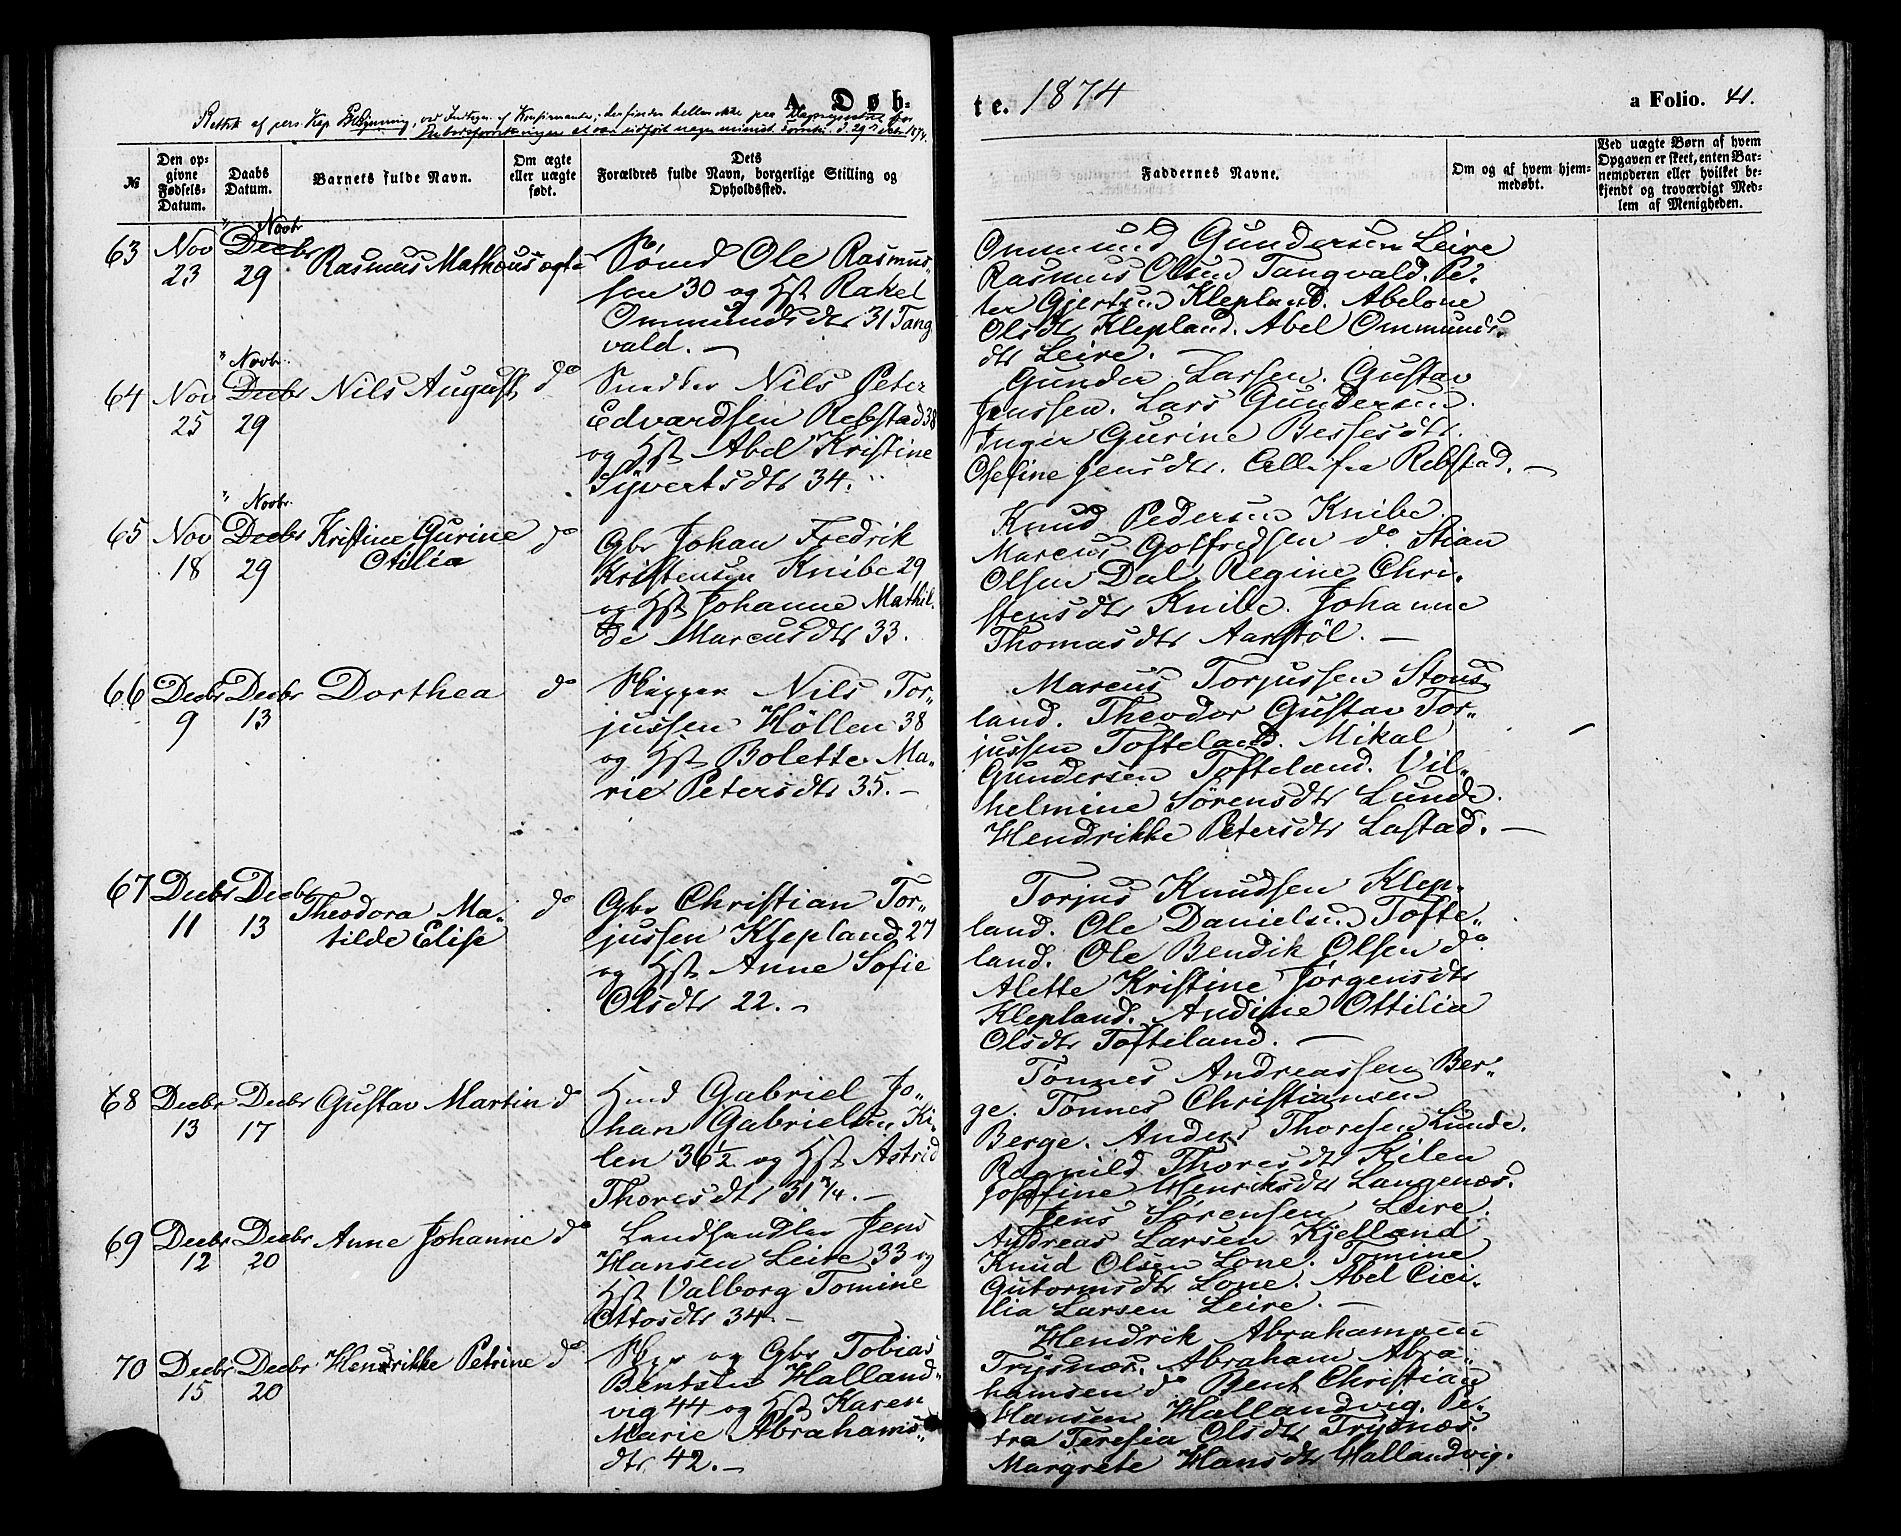 A. Døb-
te. 1874
a Folio. 41.
Rettet af pers. Kap. ved Indtegn. af Konfirmanter; der findes heller ikke paa for
1874.
№
Den op-
givne
Fødsels-
Datum.
Daabs
Datum.
Barnets fulde Navn.
Om ægte
eller uægte
født.
Dets
Forældres fulde Navn, borgerlige Stilling og
Opholdssted.
Faddernes Navne.
Om og af hvem hjem-
medøbt.
Ved uægte Børn af hvem
Opgaven er skeet, enten Bar-
nemoderen eller hvilket be-
kjendt og troværdigt Med-
lem af Menigheden.
63 Nov 23 Decbr " Novbr 29 Rasmus Matheus ægte
Sømd Ole Rasmus-
sen 30 og Hst Rakel
Ommundsdtr 31 Tang
vald. —
Ommund Gundersen Leire
Rasmus Olsen Tangvald. Pe-
ter Gjertsen Klepland. Abelone
Olsdtr Klepland. Abel Ommunds-
dtr Leire. —
64 Nov 25 Decbr " Novbr. 29 Nils August do
Snedker Nils Peter
Edvardsen Rebstad 38
og Hst Abel Kristine
Syvertsdtr 34.
Gunder Larsen. Gustav
Jenssen. Lars Gundersen.
Inger Gurine Bessesdtr.
Osefine Jensdtr. Alle fra Rebstad. —
65 Nov 18 Decbr " Novbr. 29 Kristine Gurine
Otilia do
Gbr Johan Fredrik
Kristensen Knibe 29
og Hst Johanne Mathil-
de Marcusdtr 33.
Knud Pedersen Knibe.
Marcus Gotfredsen do Stian
Olsen Dal. Regine Chri-
stensdtr Knibe. Johanne
Thomasdtr Aarstöl. —
66 Decbr 9 Decbr 13 Dorthea do
Skipper Nils Tor-
jussen Höllen 38
og Hst Bolette Ma-
rie Petersdtr 35. —
Marcus Torjussen Stous-
land. Theodor Gustav Tor-
jussen Tofteland. Mikal
Gundersen Tofteland. Vil-
helmine Sörensdtr Lunde.
Hendrikke Petersdtr Lastad. —
67 Decbr 11 Decbr 13 Theodora Ma-
tilde Elise do
Gbr Christian Tor-
jussen Klepland 27
og Hst Anne Sofie
Olsdtr 22. —
Torjus Knudsen Klep-
land. Ole Danielsen Tofte-
land. Ole Bendik Olsen do.
Alette Kristine Jörgensdtr
Klepland. Andine Ottilia
Olsdtr Tofteland. —
68 Decbr 13 Decbr 17 Gustav Martin do
Gabriel Jo-
han Gabrielsen Ki-
len 36½ og Hst Astrid
Thoresdtr 31¾. —
Tönnes Andreassen Ber-
ge. Tönnes Christiansen
Berge. Anders Thoresen Lunde.
Ragnild Thoresdtr Kilen
Josefine Henriksdtr Langenæs.
69 Decbr 12 Decbr 20 Anne Johanne do
Landhandler Jens
Hansen Leire 33 og
Hst Valborg Tomine
Ottosdtr 34 —
Jens Sörensen Leire.
Andreas Larsen Kjelland
Knud Olsen Lone. Tomine
Gutormsdtr Lone. Abel Cici-
lia Larsen Leire. —
70 Decbr 15 Decbr 20 Hendrikke Petrine do
og Gbr Tobias
Bentsen Halland-
vig 44 og Hst Karen
Marie Abrahams-
dtr 42. —
Hendrik Abrahamsen
Trysnæs. Abraham Abra-
hamsen do Bent Christian
Hansen Hallandvig. Pe-
tra Teresia Olsdtr Trysnæs.
Margrete Hansdtr Hallandvig.